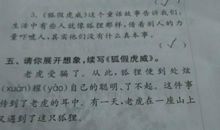 3.《狐假虎威》这个童话故事告诉我们,
生活中有些人就像狐狸那样,借着别人的力
量吓唬人,其实他的没有什么真本事。
(√)
五、请你展开想象,续写《狐假虎威》。
老虎受骗了。从此,狐狸便到处炫
(xuàn)耀(yào)自己的聪明、了不起。这件事
传到了老虎的耳中。有一天,老虎在一座山上
又遇到了这只狐狸。